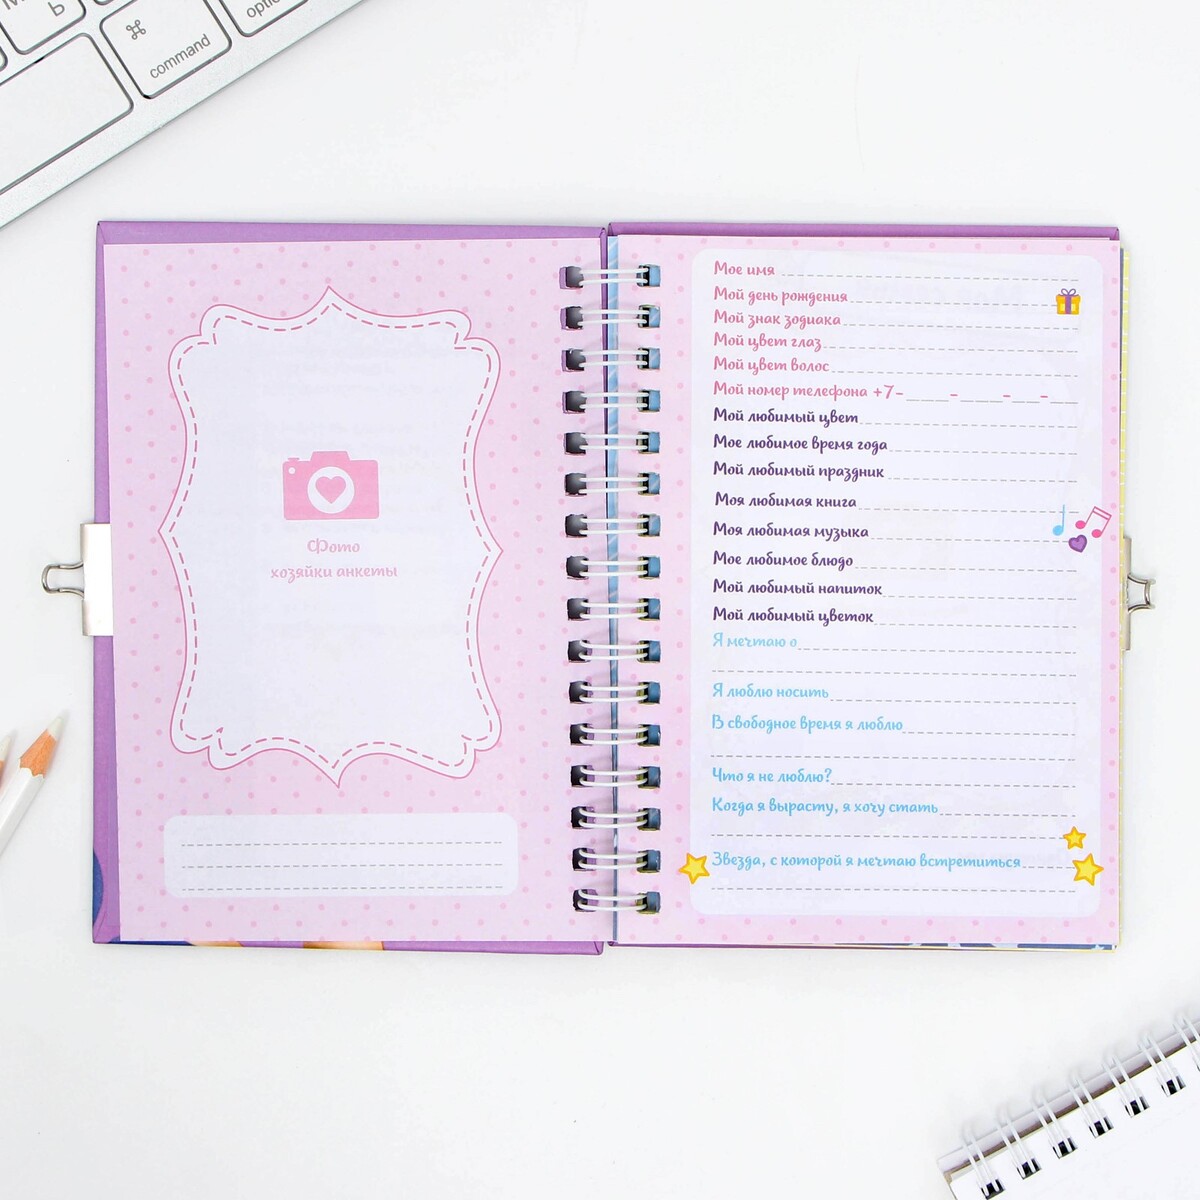 Ь
⌘
command
option
Фото
хозяйки анкеты
Мое имя
Мой день рождения
Мой знак зодиака
Мой цвет глаз
Мой цвет волос
Мой номер телефона +7-____-___-__-__
Мой любимый цвет
Мое любимое время года
Мой любимый праздник
Моя любимая книга
Моя любимая музыка
Мое любимое блюдо
Мой любимый напиток
Мой любимый цветок
Я мечтаю о
Я люблю носить
В свободное время я люблю
Что я не люблю?
Когда я вырасту, я хочу стать
Звезда, с которой я мечтаю встретиться